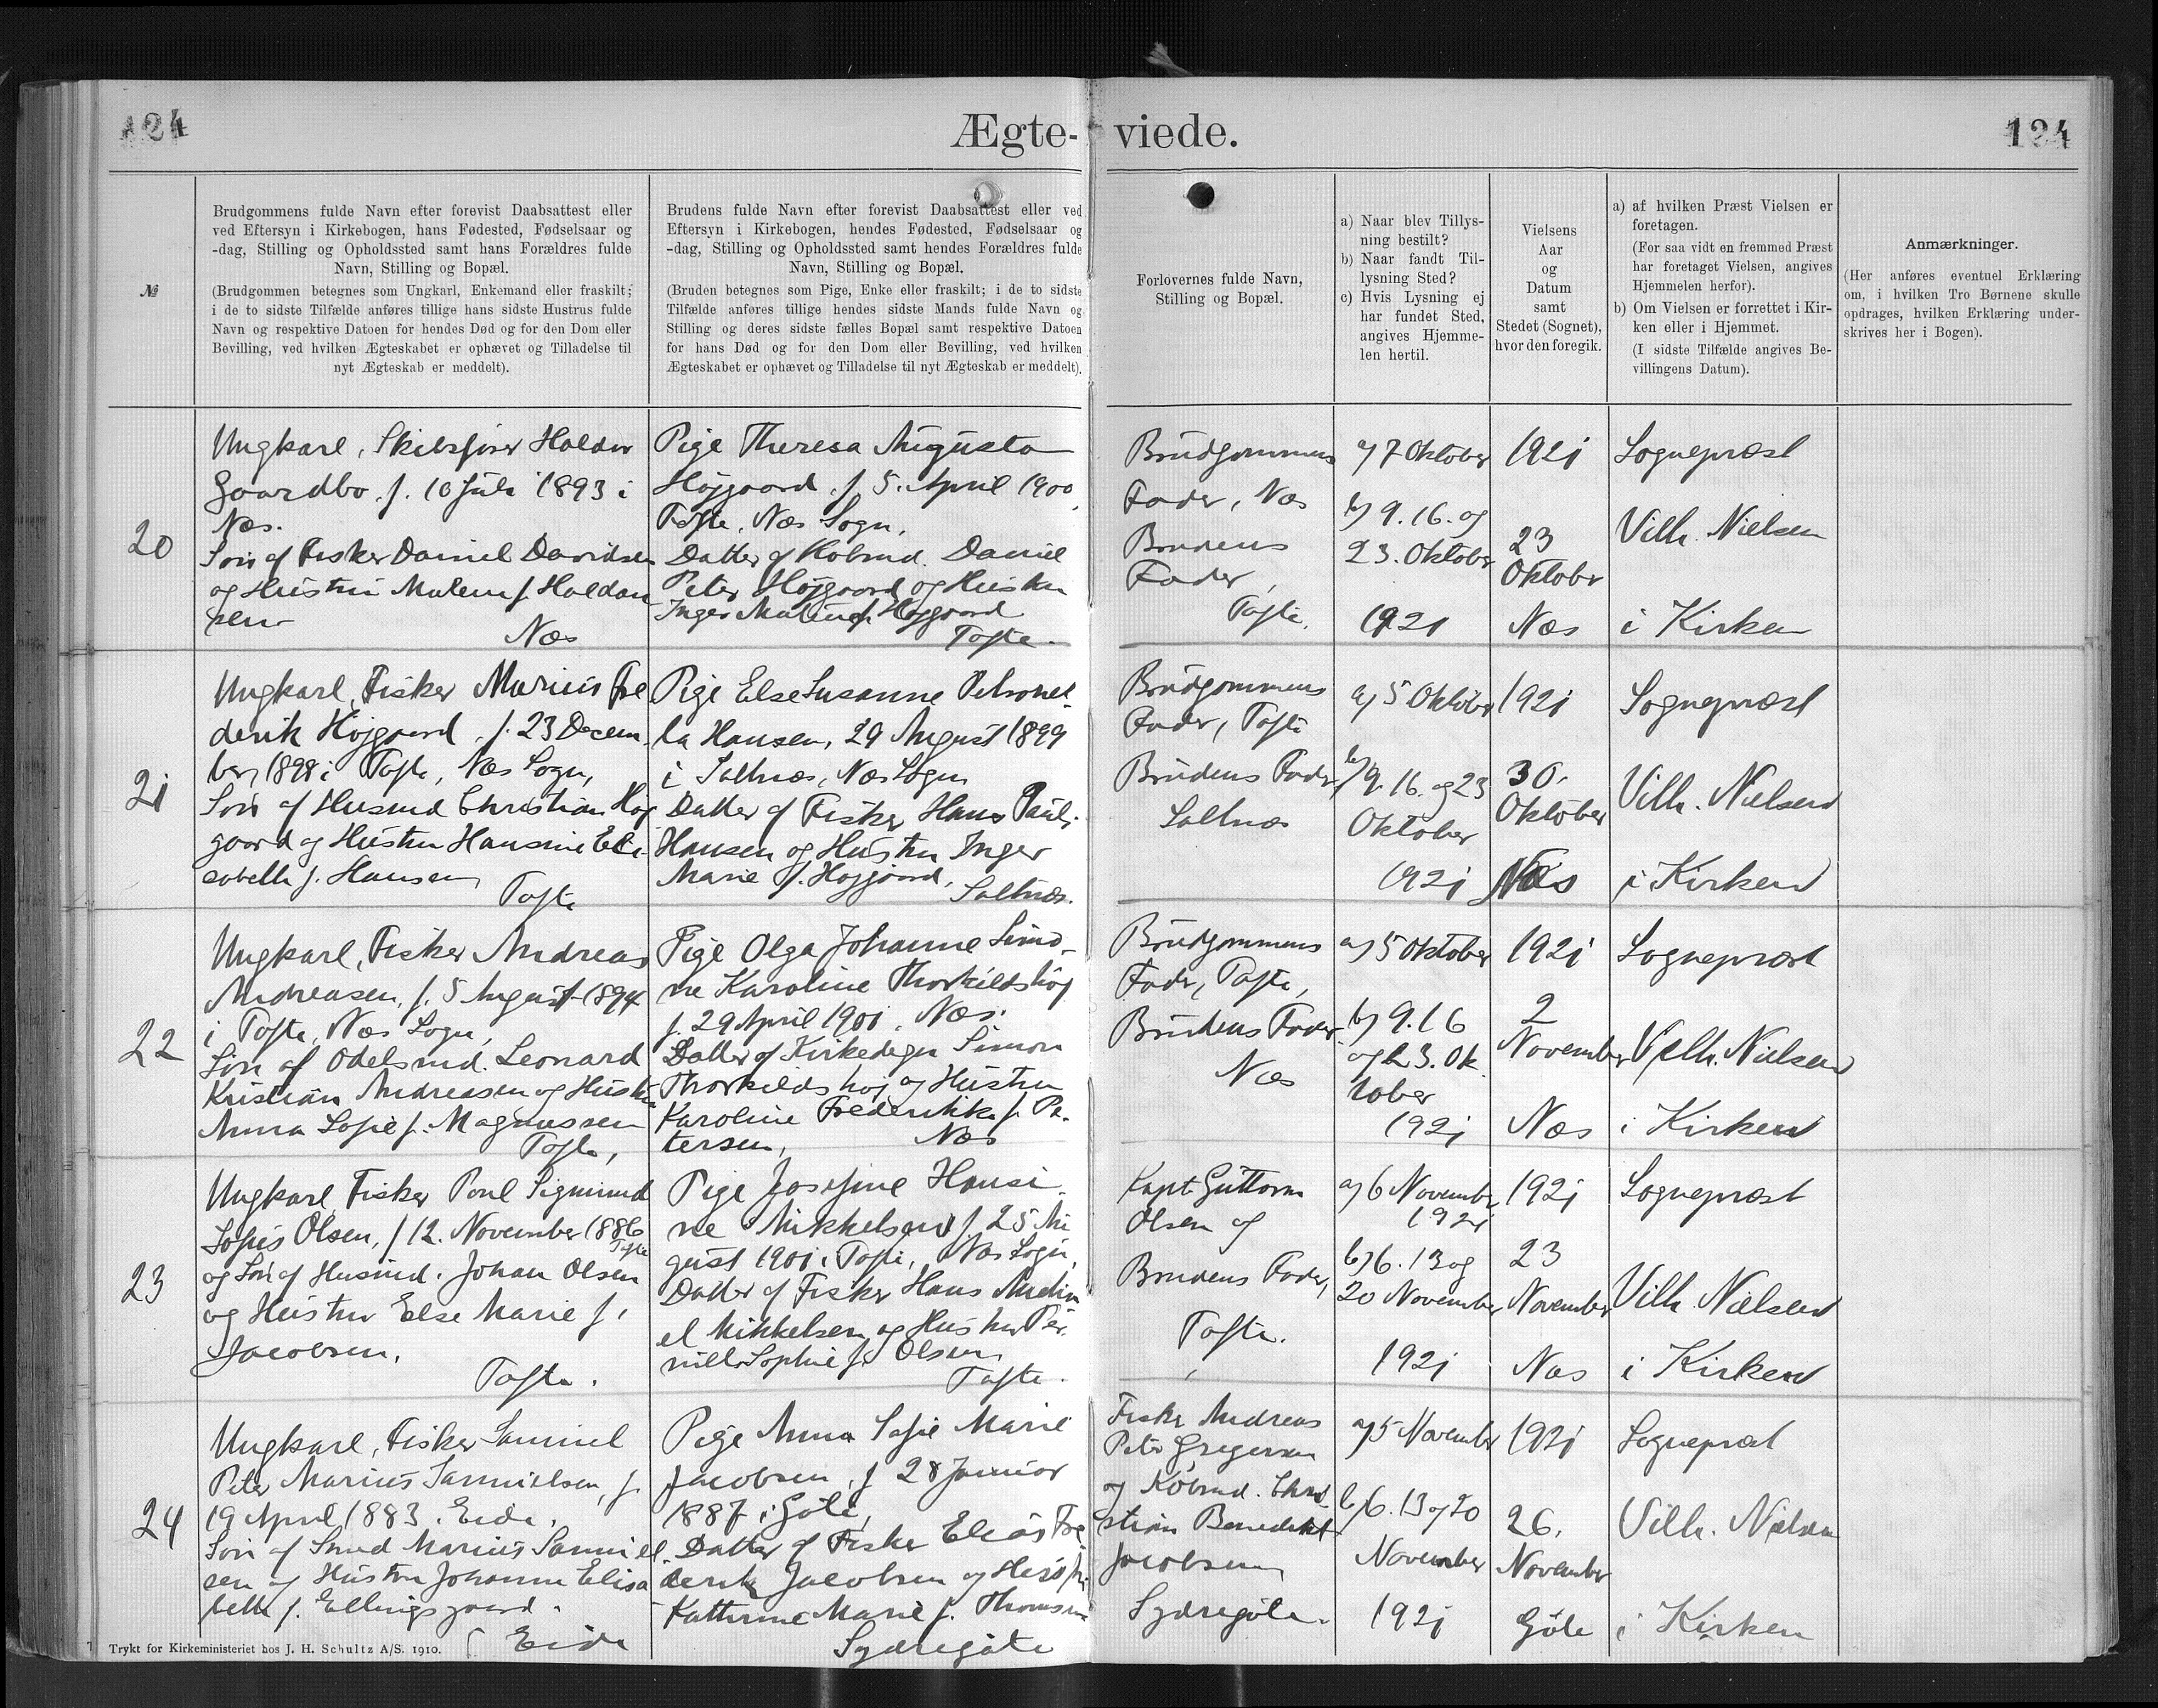 124
Ægte-
viede.
124
№
Brudgommens fulde Navn efter forevist Daabsattest eller
ved Eftersyn i Kirkebogen, hans Fødested, Fødselsaar og
-dag, Stilling og Opholdssted samt hans Forældres fulde
Navn, Stilling og Bopæl.
(Brudgommen betegnes som Ungkarl, Enkemand eller fraskilt;
i de to sidste Tilfælde anføres tillige hans sidste Hustrus fulde
Navn og respektive Datoen for hendes Død og for den Dom eller
Bevilling, ved hvilken Ægteskabet er ophævet og Tilladelse til
nyt Ægteskab er meddelt).
Brudens fulde Navn efter forevist Daabsattest eller ved
Eftersyn i Kirkebogen, hendes Fødested, Fødselsaar og
-dag, Stilling og Opholdssted samt hendes Forældres fulde
Navn, Stilling og Bopæl.
(Bruden betegnes som Pige, Enke eller fraskilt; i de to sidste
Tilfælde anføres tillige hendes sidste Mands fulde Navn og
Stilling og deres sidste fælles Bopæl samt respektive Datoen
for hans Død og for den Dom eller Bevilling, ved hvilken
Ægteskabet er ophævet og Tilladelse til nyt Ægteskab er meddelt).
Forlovernes fulde Navn,
Stilling og Bopæl.
a) Naar blev Tillys-
ning bestilt?
b) Naar fandt Til-
lysning Sted?
c) Hvis Lysning ej
har fundet Sted,
angives Hjemme-
len hertil.
Vielsens
Aar
og
Datum
samt
Stedet (Sognet),
hvor den foregik.
a) af hvilken Præst Vielsen er
foretagen.
(For saa vidt en fremmed Præst
har foretaget Vielsen, angives
Hjemmelen herfor).
b) Om Vielsen er forrettet i Kir-
ken eller i Hjemmet.
(I sidste Tilfælde angives Be-
villingens Datum).
Anmærkninger.
(Her anføres eventuel Erklæring
om, i hvilken Tro Børnene skulle
opdrages, hvilken Erklæring under-
skrives her i Bogen).
20
Ungkarl, Skibsfører Haldor
Gaardbo, f. 10 Juli 1893 i
Næs.
Søn af Fisker Daniel Davidsen
og Hustru Malene f. Haldan
sen
Næs
Pige Theresa Augusta
Højgaard, f. 5. April 1900
Tofte, Næs Sogn,
Datter af Kobmd. Daniel
Peter Højgaard og Hustru
Inger Malene f. Højgaard
Tofte.
Brudgommens
Fader, Næs
Brudens
Fader,
Tofte.
a) 7 Oktober
b) 9. 16. og
23. Oktober
1921
1921
23
Oktober
Næs
Sognepræst
Vilh. Nielsen
i Kirken
21
Ungkarl, Fisker Marius Fre
derik Højgaard, f. 23 Decem
ber 1898 i Tofte, Næs Sogn,
Søn af Husmd Christian Høj
gaard og Hustru Hansine Eli
sabeth f. Hansen
Tofte
Pige Else Susanne Petronel-
la Hansen, 29 August 1899
i Saltnæs, Næs Sogn
Datter af Fisker Hans Pauli
Hansen og Hustru Inger
Marie f. Højgaard,
Saltnæs.
Brudgommens
Fader, Tofte
Brudens Fader
Saltnæs
a) 5 Oktober
b) 9. 16. og 23
Oktober
1921
1921
30.
Oktober
Næs
Sognepræst
Vilh. Nielsen
i Kirken
22
Ungkarl, Fisker Andreas
Andreasen, f. 5 August 1894
i Tofte, Næs Sogn,
Søn af Odelsmd. Leonard
Kristian Andreasen og Hustru
Anna Sofie f. Magnussen
Tofte,
Pige Olga Johanne Simo-
ne Karoline Thorkildshøj
f. 29 April 1901, Næs.
Datter af Kirkedegn Simon
Thorkildshøj og Hustru
Karoline Frederikke f. Pe-
tersen,
Næs
Brudgommens
Fader, Tofte,
Brudens Fader
Næs
a) 5 Oktober
b) 9. 16
og 23. Ok
tober
1921
1921
2
November
Næs
Sognepræst
Vilh. Nielsen
i Kirken
23
Ungkarl, Fisker Poul Sigmund
Sofus Olsen, f 12. November 1886
Tofte
og Søn af Husmd. Johan Olsen
og Hustru Else Marie f.
Jacobsen,
Tofte.
Pige Josefine Hansi
ne Mikkelsen f. 25 Au
gust 1901 i Tofte, Næs Sogn,
Datter af Fisker Hans
el Mikkelsen og Hustru Per
nille Sophie f. Olsen
Tofte.
Kapt. Guttorm
Olsen og
Brudens Fader,
Tofte.
a) 6 November
1921
b) 6. 13 og
20 November
1921
1921
23
November
Næs
Sognepræst
Vilh. Nielsen
i Kirken
24
Ungkarl, Fisker Samuel
Peter Marius Samuelsen, f.
19 April 1883. Eide.
Søn af Smed Marius Samuel
sen og Hustru Johanne Elisa
beth f. Ellingsgaard.
Eide
Pige Anna Sofie Marie
Jacobsen, f 28 Januar
1887 i Göte,
Datter af Fisker Elias Fre
derik Jacobsen og Hustru
Kathrine Marie f. Thomsen
Sydregöte
Fisker Andreas
Peter Gregersen
og Kobmd. Chri
stian Benedikt
Jacobsen
Sydregöte.
a) 5 November
b) 6. 13 og 20
November
1921
1921
26.
November
Göte
Sognepræst
Vilh. Nielsen
i Kirken
Trykt for Kirkeministeriet hos J. H. Schultz A/S. 1910.